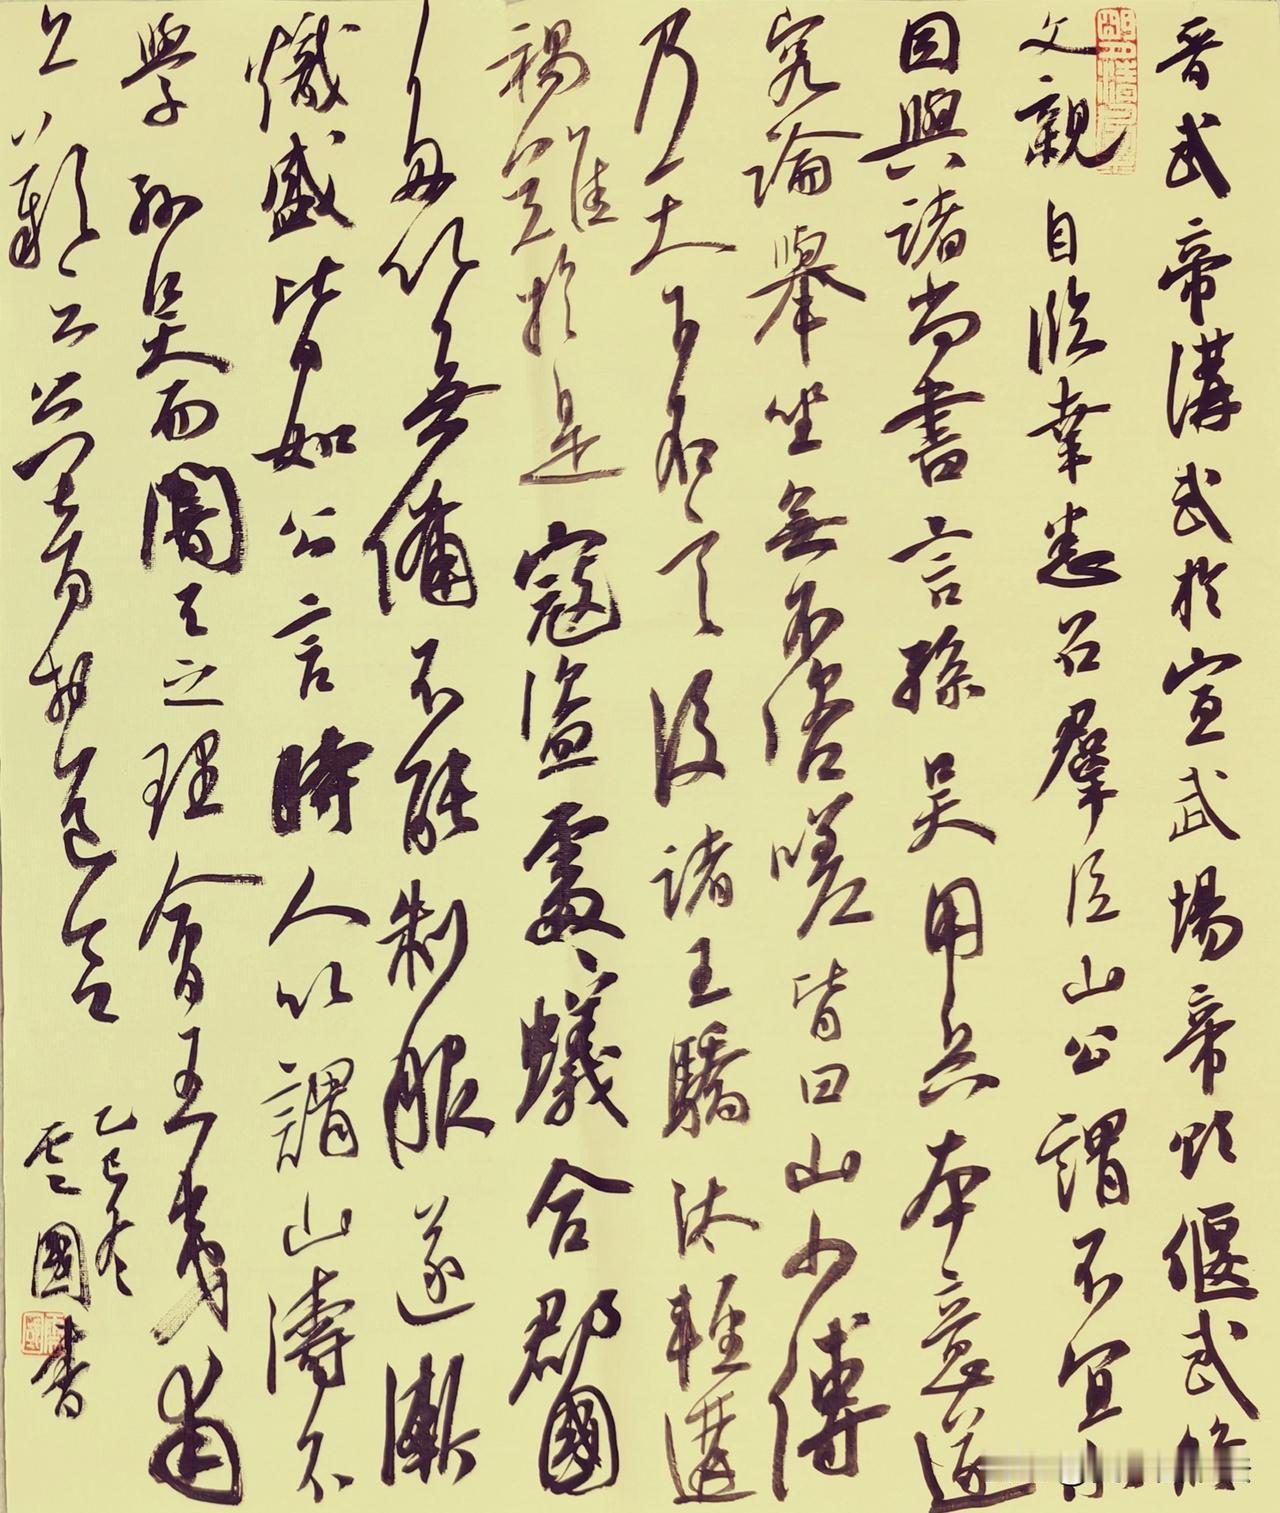 晉武帝講武於宣武場帝欲偃武修
文親自臨幸悉召羣臣山公謂不宜尔
因與諸尚書言孫吳用兵本意遂
究論舉坐無不咨嗟皆曰山少傅
乃天下名言後諸王驕汰輕遘
禍難於是寇盜處〻蟻合郡國
多以無備不能制服遂漸
熾盛皆如公言時人以謂山濤不
學孫吳而闇與之理會王夷甫
亦歎云公闇與道合
乙巳冬
雲國書